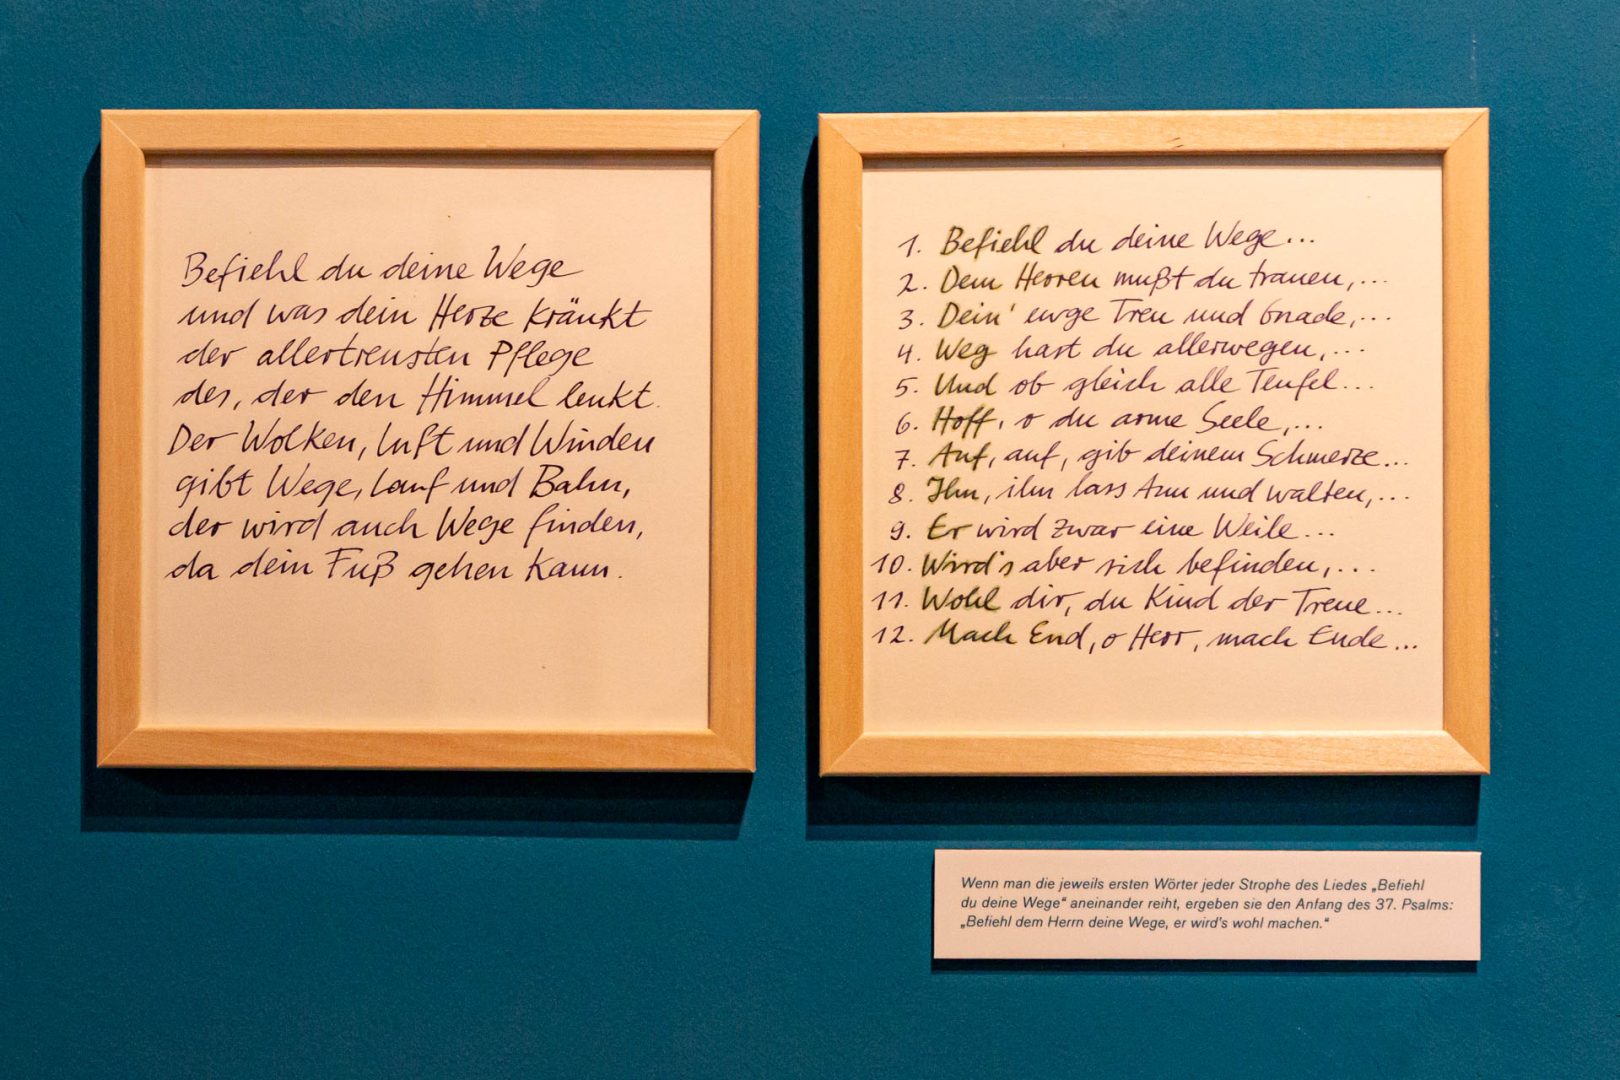 Befiehl du deine Wege
und was dein Herze kränkt
der allertreusten Pflege
des, der den Himmel lenkt.
Der Wolken, Luft und Winden
gibt Wege, Lauf und Bahn,
der wird auch Wege finden,
da dein Fuß gehen kann.
1. Befiehl du deine Wege...
2. Dem Herren mußt du trauen,...
3. Dein' ewge Treu und Gnade,...
4. Weg hast du allerwegen,...
5. Und ob gleich alle Teufel...
6. Hoff, o du arme Seele,...
7. Auf, auf, gib deinem Schmerze...
8. Ihn, ihn lass tun und walten,...
9. Er wird zwar eine Weile...
10. Wird's aber sich befinden,...
11. Wohl dir, du Kind der Treue...
12. Mach End, o Herr, mach Ende...
Wenn man die jeweils ersten Wörter jeder Strophe des Liedes „Befiehl
du deine Wege“ aneinander reiht, ergeben sie den Anfang des 37. Psalms:
„Befiehl dem Herrn deine Wege, er wird's wohl machen.“